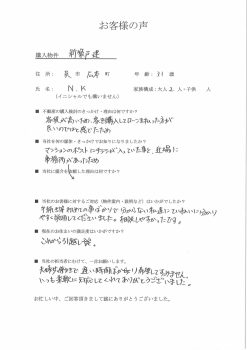 お客様の声
購入物件 新築戸建
住所: 市 町 年齢: 31 歳
氏名: N.K 家族構成:大人 2 人・子供 人
(イニシャルでも構いません)
■ 不動産の購入検討のきっかけ・理由は何ですか?
家賃が高いため、家を購入してローン払った方が
良いのではと感じたため
■ 当社を初め知った・きっかけでお知りになりましたか?
マンションのポストにチラシが入っていた事と、近場に
事務所があったため
■ 当社に仲介を依頼した理由は何ですか?
■ 当社のお客様に対するご対応(物件案内・説明など)はいかがでしたか?
不動産 初めての事ばかりで分からない私達にていねいに分かり
やすく説明してくださいました。相談しやすかったです。
■ 現在のお住まいの満足度はいかがですか?
これから引越し
■ 当社の担当者にむけて、一言お願いします。
夫婦 遅い時間ばかり すみません。
いつも素敵に対応してくれてありがとうございました。
お忙しい中、ご回答頂きまして誠にありがとうございました。